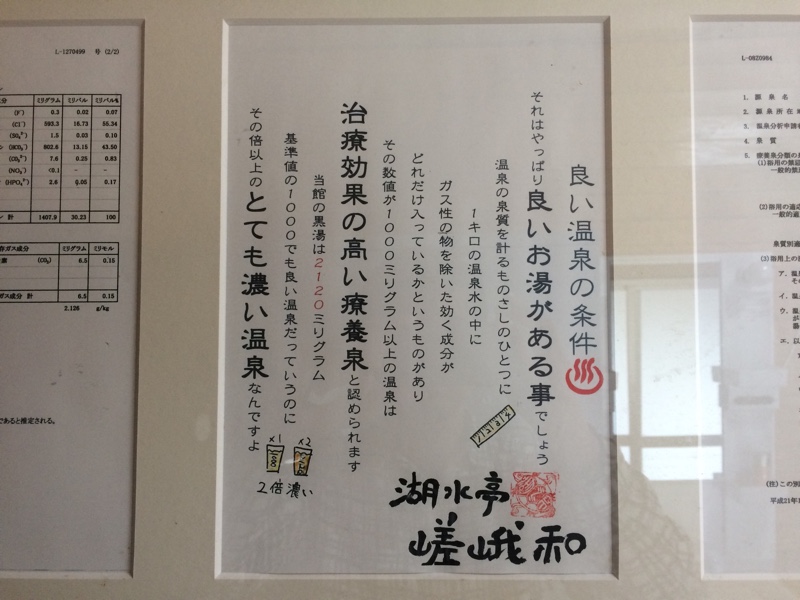 L-1270499 号 (2/2)
分 ミリグラム ミリバル ミリバル%
(F⁻) 0.3 0.02 0.07
(Cl⁻) 593.3 16.73 55.34
(SO₄²⁻) 1.5 0.03 0.10
(HCO₃⁻) 802.6 13.15 43.50
(CO₃²⁻) 7.6 0.25 0.83
(NO₃⁻) <0.1 - -
(HPO₄²⁻) 2.6 0.05 0.17
計 1407.9 30.23 100
存ガス成分 ミリグラム ミリモル
(CO₂) 6.5 0.15
ガス成分 計 6.5 0.15
2.126 g/kg
であると推定される。
良い温泉の条件
それはやっぱり良いお湯がある事でしょう
温泉の泉質を計るものさしのひとつに
1キロの温泉水の中に
ガス性の物を除いた効く成分が
どれだけ入っているかというものがあり
その数値が1000ミリグラム以上の温泉は
治療効果の高い療養泉と認められます
当館の黒湯は2120ミリグラム
基準値の1000でも良い温泉だっていうのに
その倍以上のとても濃い温泉なんですよ
×1 ×2
2倍濃い
湖水亭
嵯峨和
L-0820984
1. 源泉名
2. 源泉所在
3. 温泉分析申請
4. 泉質
5. 療養泉分類の
(1)浴用の禁忌
一般的禁
(2)浴用の適応
一般的適
泉質別
(3)浴用上の
ア.
イ.
ウ.
エ.
(注)この別
平成21年